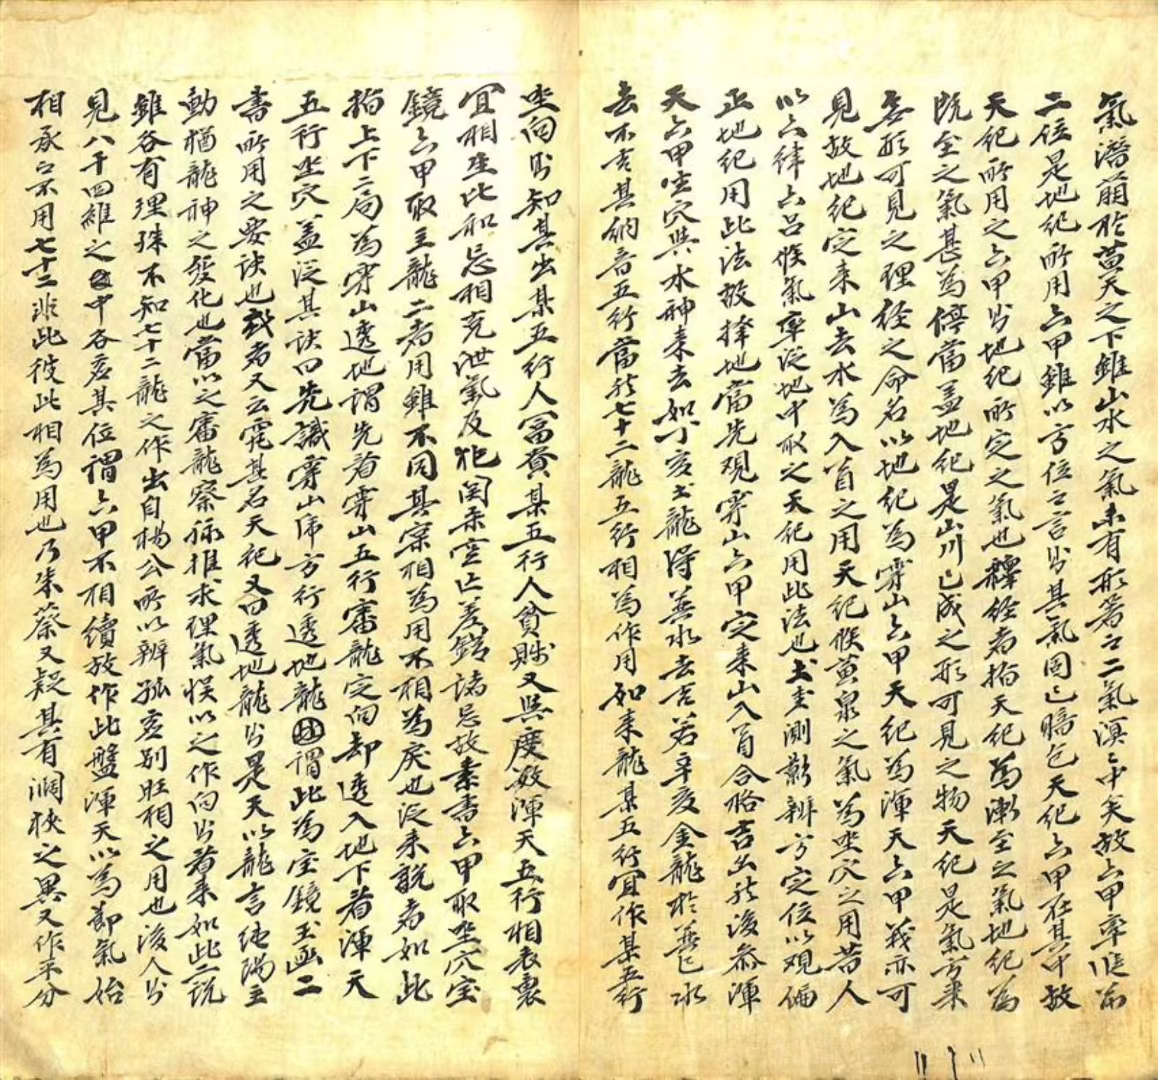 氣潛萌於黃天之下雖山水之氣未有形著而二氣溟㳷矣故六甲率從
二位是地紀所用六甲雖以方位而言則其氣固已暗包天紀六甲在其中故
天紀所用之六甲則地紀所定之氣也釋經者指天紀為漸至之氣地紀為
既至之氣甚為停當蓋地紀是山川已成之形可見之物天紀是氣方來
無形可見之理經之命名以地紀為穿山六甲天紀為渾天六甲義亦可
見故地紀定來山去水為入首之用天紀候黃泉之氣為坐穴之用昔人
以六律六呂候氣率從地中取之天紀用此法也土圭測影辨方定位以觀偏
正地紀用此法故擇地當先觀穿山六甲定來山入首合格吉凶然後叅渾
天六甲坐穴與水神來去如丁亥土龍得某水去吉若辛亥金龍於某水
去不吉其納音五行當於七十二龍五行相為作用如來龍某五行宜作某五行
坐向則知其出某五行人富貴某五行人貧賤又與度數渾天五行相表裏
宜相生比和忌相克泄氣及犯関柔空亡差錯諸忌故素書六甲取坐穴宝
鏡六甲取主龍二者用雖不同其寔相為用不相為戾也從來說者如此
指上下二局為穿山透地謂先看穿山五行審龍定向却透入地下看渾天
五行坐穴蓋從其訣曰先識穿山虎方行透地龍謂此為宝鏡玉函二
書所用之要訣也或者又云䨇其名天祀又曰透地龍則是天以龍言純陽主
動猶龍神之發化也當以之審龍察脉推求理氣悞以之作向則看來如此二說
雖各有理殊不知七十二龍之作出自楊公所以辨孤虛別旺相之用也後人則
見八干四維之中各虛其位謂六甲不相續故作此盤渾天以為節氣始
相承而不用七十二非此彼此相為用也乃朱蔡又疑其有濶狹之異又作平分